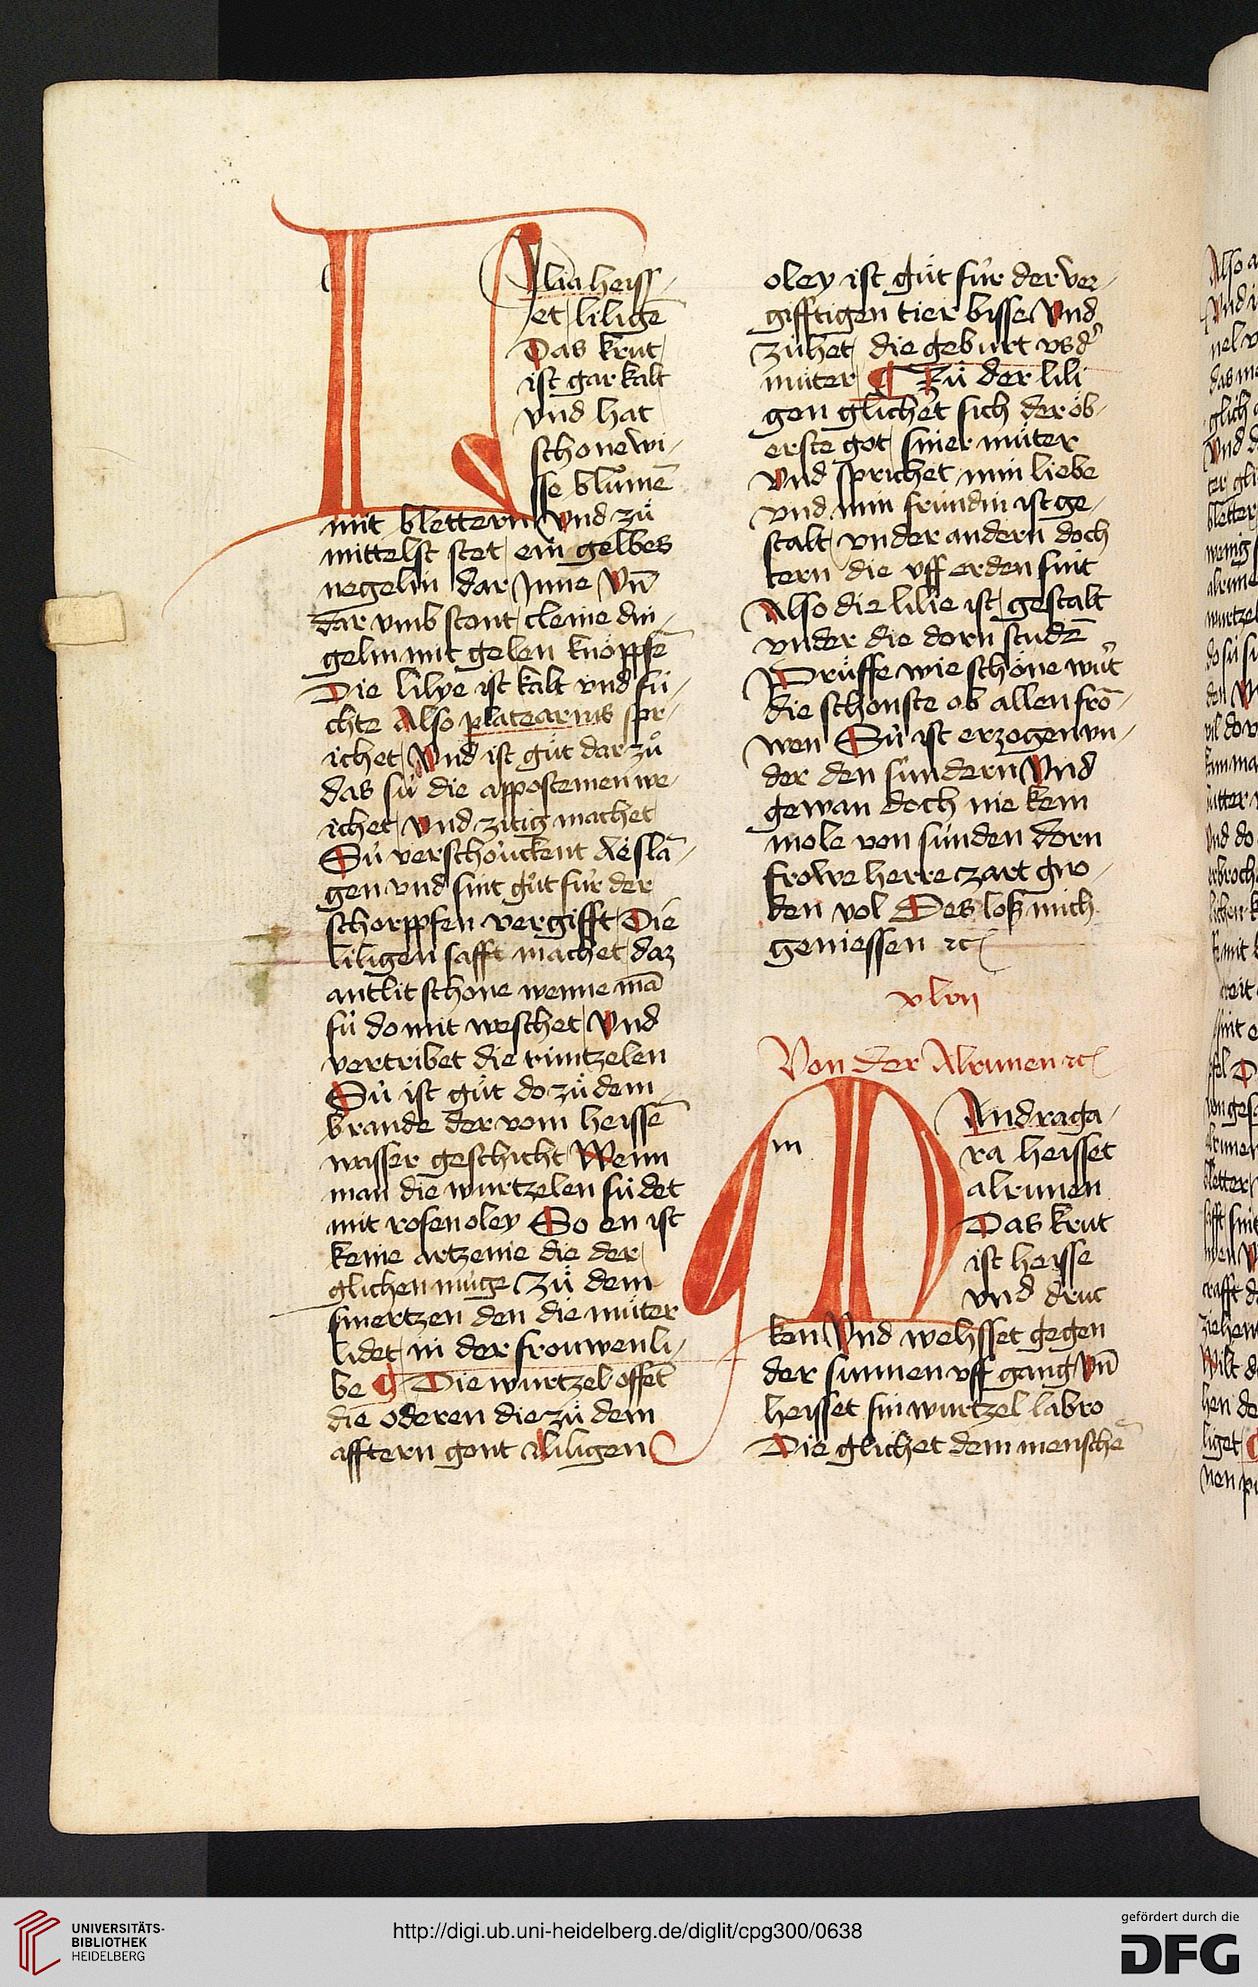 LIlia heiss-
et liligē
Das krut
ist gar kalt
vnd hat
schone wi-
sse blůmē
mit blettern Vnd zů
mittelst stet ein gelbes
negelin dar Inne Vn̄
dar vmb stont cleine din-
gelin mit gelen knöppfē
Die lilye ist kalt vnd fü-
chte Also platearius spr-
ichet Vnd ist gůt dar zů
das sü die appostemen we-
ichet Vnd zitig machet
Sü verschouckent
gen vnd sint gůt für der
schorppfen vergifft Die
liligen safft machet daz
antlit schone wenne mā
sü do mit weschet Vnd
vertribet die runtzelen
Sü ist gůt do zů dem
brande der vom heissē
wasser geschicht Wenn
man die wurtzelen südet
mit rosen oley So en ist
keine artzenie die der
glichen müge Zů dem
smertzen den die můter
lidet in der frouwen li-
be ¶ Die wurtzel offēt
die oderen die zů dem
afftern gont liligen
oley ist gůt für der ver-
gifftigen tier bisse Vnd
zühet die geburt vs d'
můter ¶ Zů der lili
gen glichet sich der öb-
erste got siner můter
Vnd sprichet min liebe
vnd min fründin ist ge-
stalt vnder andern doch
tern die vff erden sint
Also die lilie ist gestalt
vnder die dorn studē
Prüffe wie schöne wůt
die schonste ob allen frō-
wen Sü ist erzogen vn-
der den sündern Vnd
gewan doch nie kein
mole von sünden dorn
frowe herre czart gno-
den vol Des losz mich
geniessen ꝛc
xlvii
Von der Alrunen ꝛc
m
MAndrago-
ra heisset
alrunen
Das krut
ist heisse
vnd druc
ken Vnd wehsset gegen
der sunnen vff gang Vn̄
heisset sin wurtzel labro
Die glichet dem menschē
UNIVERSITÄTS-
BIBLIOTHEK
HEIDELBERG
http://digi.ub.uni-heidelberg.de/diglit/cpg300/0638
gefördert durch die
DFG